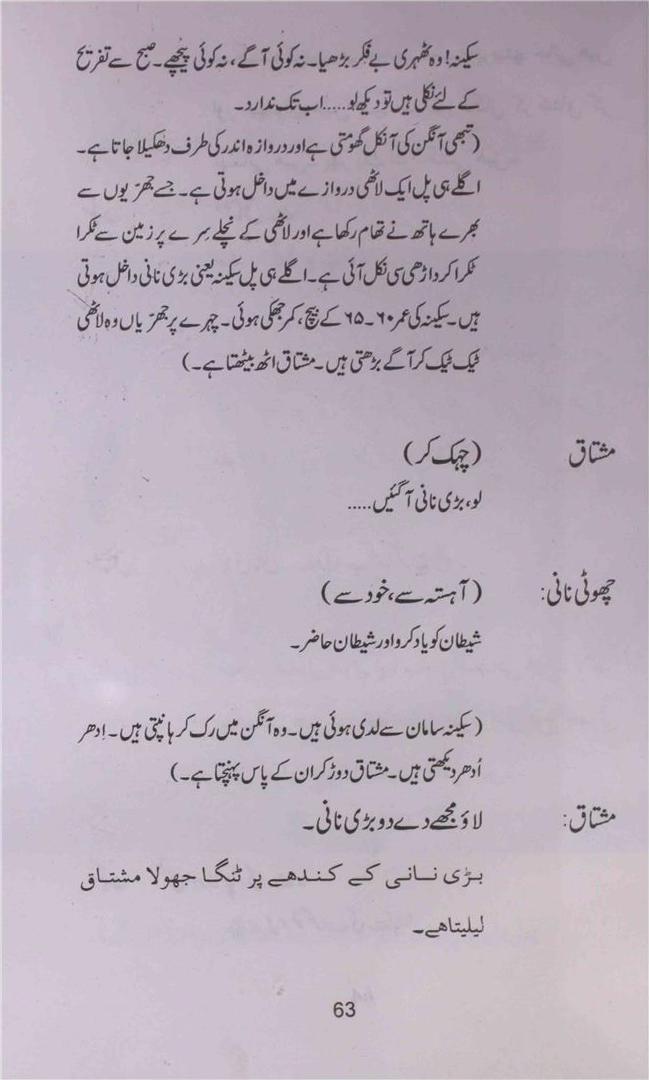 سکینہ! وہ ٹھہری بے فکر بڑھیا۔ نہ کوئی آگے، نہ کوئی پیچھے۔ صبح سے تفریح
کے لئے نکلی ہیں تو دیکھ لو..... اب تک ندارد۔
(تبھی آنگن کی آنکل گھومتی ہے اور دروازہ اندر کی طرف دھکیلا جاتا ہے۔
اگلے ہی پل ایک لاٹھی دروازے میں داخل ہوتی ہے۔ جسے جھرّیوں سے
بھرے ہاتھ نے تھام رکھا ہے اور لاٹھی کے نچلے سِرے پر زمین سے ٹکرا
ٹکرا کر داڑھی سی نکل آئی ہے۔ اگلے ہی پل سکینہ یعنی بڑی نانی داخل ہوتی
ہیں۔ سکینہ کی عمر ۶۰۔۶۵ کے بیچ، کمر جھکی ہوئی۔ چہرے پر جھرّیاں وہ لاٹھی
ٹیک ٹیک کر آگے بڑھتی ہیں۔ مشتاق اٹھ بیٹھتا ہے۔)
مشتاق (چہک کر)
لو، بڑی نانی آگئیں.....
چھوٹی نانی: (آہستہ سے، خود سے)
شیطان کو یاد کرو اور شیطان حاضر۔
(سکینہ سامان سے لدی ہوئی ہیں۔ وہ آنگن میں رک کر ہانپتی ہیں۔ اِدھر
اُدھر دیکھتی ہیں۔ مشتاق دوڑ کر ان کے پاس پہنچتا ہے۔)
مشتاق: لاؤ مجھے دے دو بڑی نانی۔
بڑی نانی کے کندھے پر ٹنگا جھولا مشتاق
لیلیتاھے۔
63